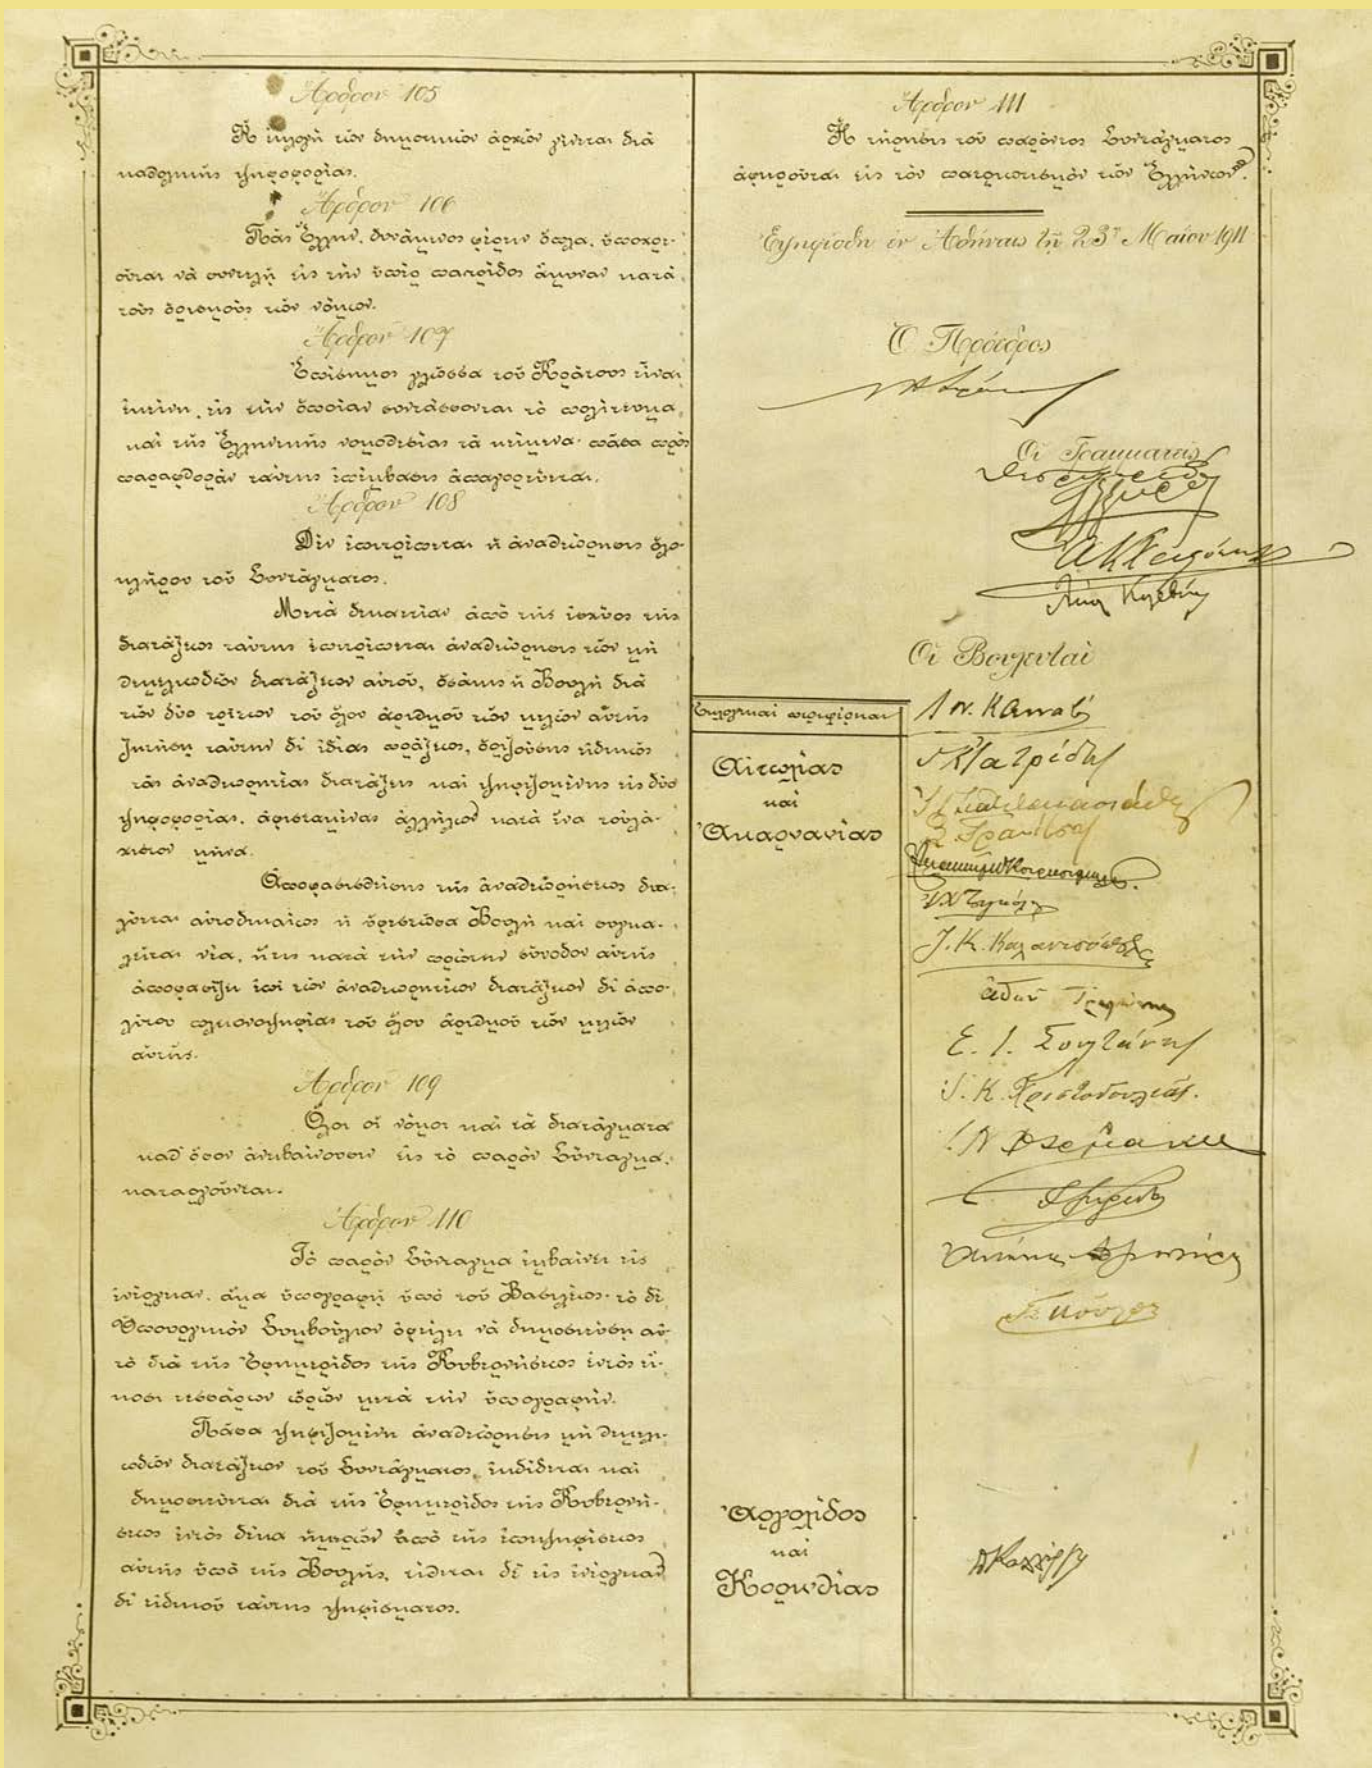 Ἄρθρον 105
Ἡ ἐκλογὴ τῶν δημοτικῶν ἀρχῶν γίνεται διὰ
καθολικῆς ψηφοφορίας.
Ἄρθρον 106
Πᾶς Ἕλλην, δυνάμενος φέρειν ὅπλα, ὑποχρε-
οῦται νὰ συντελῇ εἰς τὴν ὑπὲρ πατρίδος ἄμυναν κατὰ
τοὺς ὁρισμοὺς τῶν νόμων.
Ἄρθρον 107
Ἐπίσημος γλῶσσα τοῦ Κράτους εἶναι
ἐκείνη, εἰς τὴν ὁποίαν συντάσσονται τὸ πολίτευμα
καὶ τῆς Ἑλληνικῆς νομοθεσίας τὰ κείμενα· πᾶσα πρὸς
παραφθορὰν ταύτης ἐπέμβασις ἀπαγορεύεται.
Ἄρθρον 108
Δὲν ἐπιτρέπεται ἡ ἀναθεώρησις ὁλο-
κλήρου τοῦ Συντάγματος.
Μετὰ δεκαετίαν ἀπὸ τῆς ἰσχύος τῆς
διατάξεως ταύτης ἐπιτρέπεται ἀναθεώρησις τῶν μὴ
θεμελιωδῶν διατάξεων αὐτοῦ, ὁσάκις ἡ Βουλὴ διὰ
τῶν δύο τρίτων τοῦ ὅλου ἀριθμοῦ τῶν μελῶν αὐτῆς
ζητήσῃ ταύτην δι' ἰδίας πράξεως, ὁριζούσης εἰδικῶς
τὰς ἀναθεωρητέας διατάξεις καὶ ψηφιζομένης εἰς δύο
ψηφοφορίας, ἀφισταμένας ἀλλήλων κατὰ ἕνα τοὐλά-
χιστον μῆνα.
Ἀποφασισθείσης τῆς ἀναθεωρήσεως δια-
λύεται αὐτοδικαίως ἡ ὑφεστῶσα Βουλὴ καὶ συγκα-
λεῖται νέα, ἥτις κατὰ τὴν πρώτην σύνοδον αὐτῆς
ἀποφασίζει ἐπὶ τῶν ἀναθεωρητέων διατάξεων δι' ἀπο-
λύτου πλειονοψηφίας τοῦ ὅλου ἀριθμοῦ τῶν μελῶν
αὐτῆς.
Ἄρθρον 109
Ὅλοι οἱ νόμοι καὶ τὰ διατάγματα
καθ' ὅσον ἀντιβαίνουσιν εἰς τὸ παρὸν Σύνταγμα,
καταργοῦνται.
Ἄρθρον 110
Τὸ παρὸν Σύνταγμα ἐμβαίνει εἰς
ἐνέργειαν, ἅμα ὑπογραφῇ ὑπὸ τοῦ Βασιλέως· τὸ δὲ
Ὑπουργικὸν Συμβούλιον ὀφείλει νὰ δημοσιεύσῃ αὐ-
τὸ διὰ τῆς Ἐφημερίδος τῆς Κυβερνήσεως ἐντὸς εἴ-
κοσι τεσσάρων ὡρῶν μετὰ τὴν ὑπογραφήν.
Πᾶσα ψηφιζομένη ἀναθεώρησις μὴ θεμελι-
ωδῶν διατάξεων τοῦ Συντάγματος, ἐκδίδεται καὶ
δημοσιεύεται διὰ τῆς Ἐφημερίδος τῆς Κυβερνή-
σεως ἐντὸς δέκα ἡμερῶν ἀπὸ τῆς ἐπιψηφίσεως
αὐτῆς ὑπὸ τῆς Βουλῆς, τίθεται δὲ εἰς ἐνέργειαν
δι' εἰδικοῦ ταύτης ψηφίσματος.
Ἄρθρον 111
Ἡ τήρησις τοῦ παρόντος Συντάγματος
ἀφιεροῦται εἰς τὸν πατριωτισμὸν τῶν Ἑλλήνων.
Ἐψηφίσθη ἐν Ἀθήναις τῇ 23ῃ Μαΐου 1911
Ὁ Πρόεδρος
Οἱ Γραμματεῖς
Οἱ Βουλευταὶ
Ἐκλογικαὶ περιφέρειαι
Αἰτωλίας
καὶ
Ἀκαρνανίας
Ε. Ι. Σουλτάνης
Ἀργολίδος
καὶ
Κορινθίας